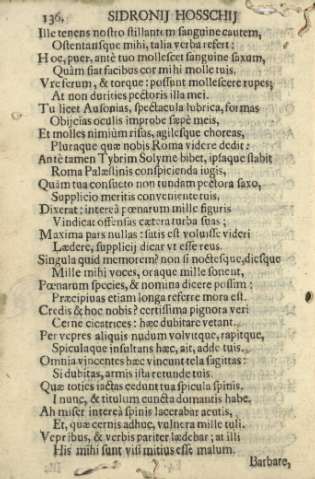 136. SIDRONIJ HOSSCHIJ
Ille tenens nostro stillantem sanguine cautem,
Ostentansque mihi, talia verba refert:
Hoc, puer, antè tuo mollescet sanguine saxum,
Quàm fiat facibus cor mihi molle tuis.
Vre ferrum, & torque: possunt mollescere rupes;
At non durities pectoris illa mei.
Tu licet Ausonias, spectacula lubrica, formas
Objicias oculis improbe sæpè meis,
Et molles nimiùm risus, agilesque choreas,
Pluraque quæ nobis Roma videre dedit:
Antè tamen Tybrim Solyme bibet, ipsaque stabit
Roma Palæstinis conspicienda iugis,
Quàm tua consueto non tundam pectora saxo,
Supplicio meritis conveniente tuis.
Dixerat: intereà pœnarum mille figuris
Vindicat offensas cætera turba suas;
Maxima pars nullas: satis est voluisse videri
Lædere, supplicij dicar vt esse reus.
Singula quid memorem? non si noctesque, diesque
Mille mihi voces, oraque mille sonent,
Pœnarum species, & nomina dicere possim:
Præcipuas etiam longa referre mora est.
Credis & hoc nobis? certissima pignora veri
Cerne cicatrices: hæc dubitare vetant.
Per vepres aliquis nudum volvitque, rapitque,
Spiculaque insultans hæc, ait, adde tuis.
Omnia vincentes hæc vincunt tela sagittas:
Si dubitas, armis ista retunde tuis.
Quæ toties iactas cedunt tua spicula spinis.
I nunc, & titulum cuncta domantis habe.
Ah miser intereà spinis lacerabar acutis,
Et, quæ cernis adhuc, vulnera mille tuli.
Vepribus, & verbis pariter lædebar; at illi
His mihi sunt visi mitius esse malum.
Barbare,